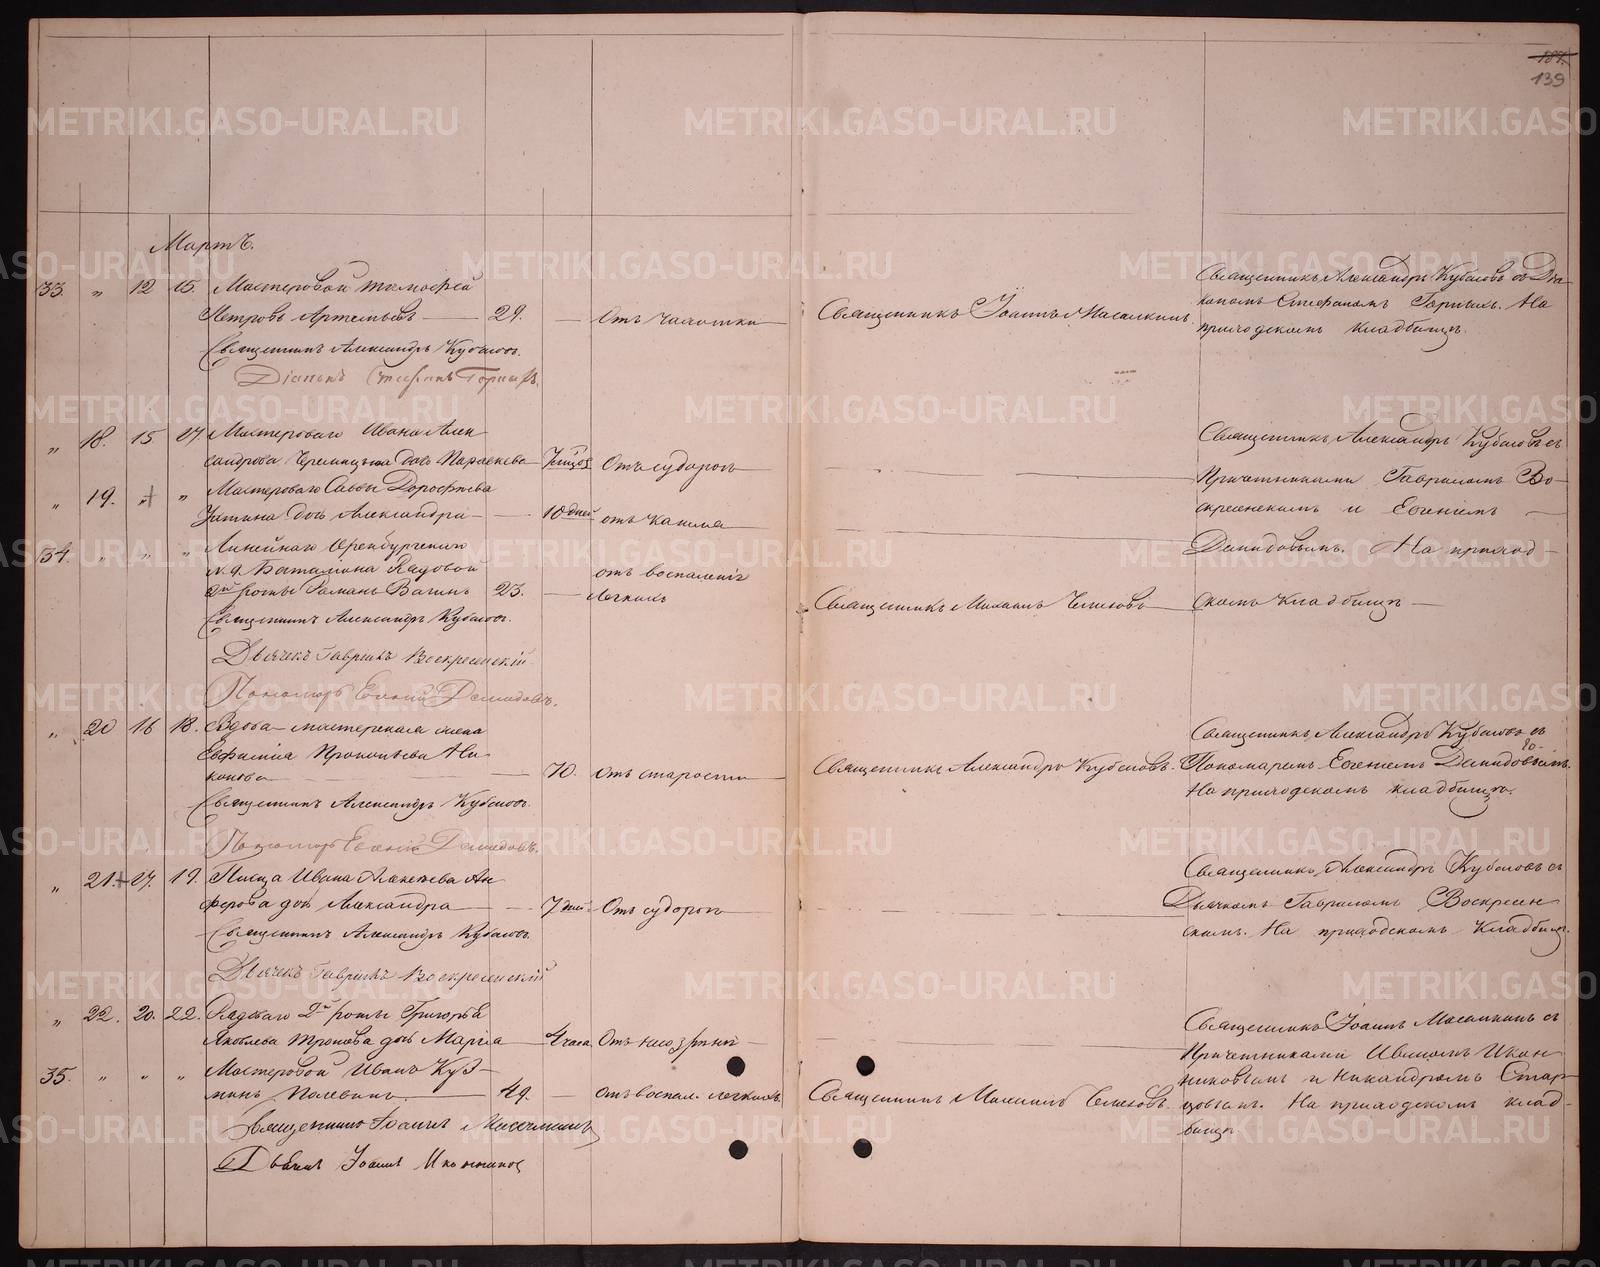 187.
139
Мартъ.
33. „ 12 15. Мастеровой Тимофей
Петровъ Артемьевъ — 29. — Отъ чахотки
Священникъ Александръ Кубасовъ.
Діаконъ Стефанъ Горныхъ.
Священникъ Іоаннъ Масалкинъ.
Священникъ Александръ Кубасовъ съ Діа-
кономъ Стефаномъ Горныхъ. На
приходскомъ кладбищѣ.
„ 18. 15 17. Мастероваго Ивана Алек-
сандрова дочь Параскева Отъ судорогъ
„ 19. „ „ Мастероваго Саввы Дорофѣева
дочь Александра — 10 дней отъ кашля
34. „ „ „ Линейнаго Оренбургскаго
№ 9. Баталіона Рядовой
2й роты Романъ Вагинъ 23. — отъ воспаленія
легкихъ
Священникъ Александръ Кубасовъ.
Дьячекъ Гавріилъ Воскресенскій
Пономарь Евгеній Демидовъ.
Священникъ Михаилъ
Священникъ Александръ Кубасовъ съ
Причетниками Гавріиломъ Во-
скресенскимъ и Евгеніемъ —
Демидовымъ. На приход-
скомъ кладбищѣ —
„ 20 16 18. Вдова мастерская жена
Евфимія Прокопьева Ни-
конова — 70. отъ старости
Священникъ Александръ Кубасовъ.
Пономарь Евгеній Демидовъ.
Священникъ Александръ Кубасовъ.
Священникъ Александръ Кубасовъ съ
Пономаремъ Евгеніемъ Демидовымъ.
На приходскомъ кладбищѣ.
„ 21. 17. 19. Писца Ивана Алексѣева Ан-
ферова дочь Александра — 7 дней. Отъ судорогъ
Священникъ Александръ Кубасовъ.
Дьячекъ Гавріилъ Воскресенскій
Священникъ Александръ Кубасовъ съ
Дьячкомъ Гавріиломъ Воскресен-
скимъ. На приходскомъ кладбищѣ.
„ 22. 20. 22. 2й роты Григорья
Яковлева дочь Марія — 4 часа. Отъ
35. „ „ „ Мастеровой Иванъ Куз-
минъ Полевинъ. — 49. — отъ воспал. легкихъ.
Священникъ Іоаннъ Масалкинъ
Дьячекъ Іоаннъ Иконниковъ
Священникъ Михаилъ
Священникъ Іоаннъ Масалкинъ съ
Причетниками Иваномъ Икон-
никовымъ и Никандромъ Стар-
цовымъ. На приходскомъ клад-
бищѣ.
METRIKI.GASO-URAL.RU